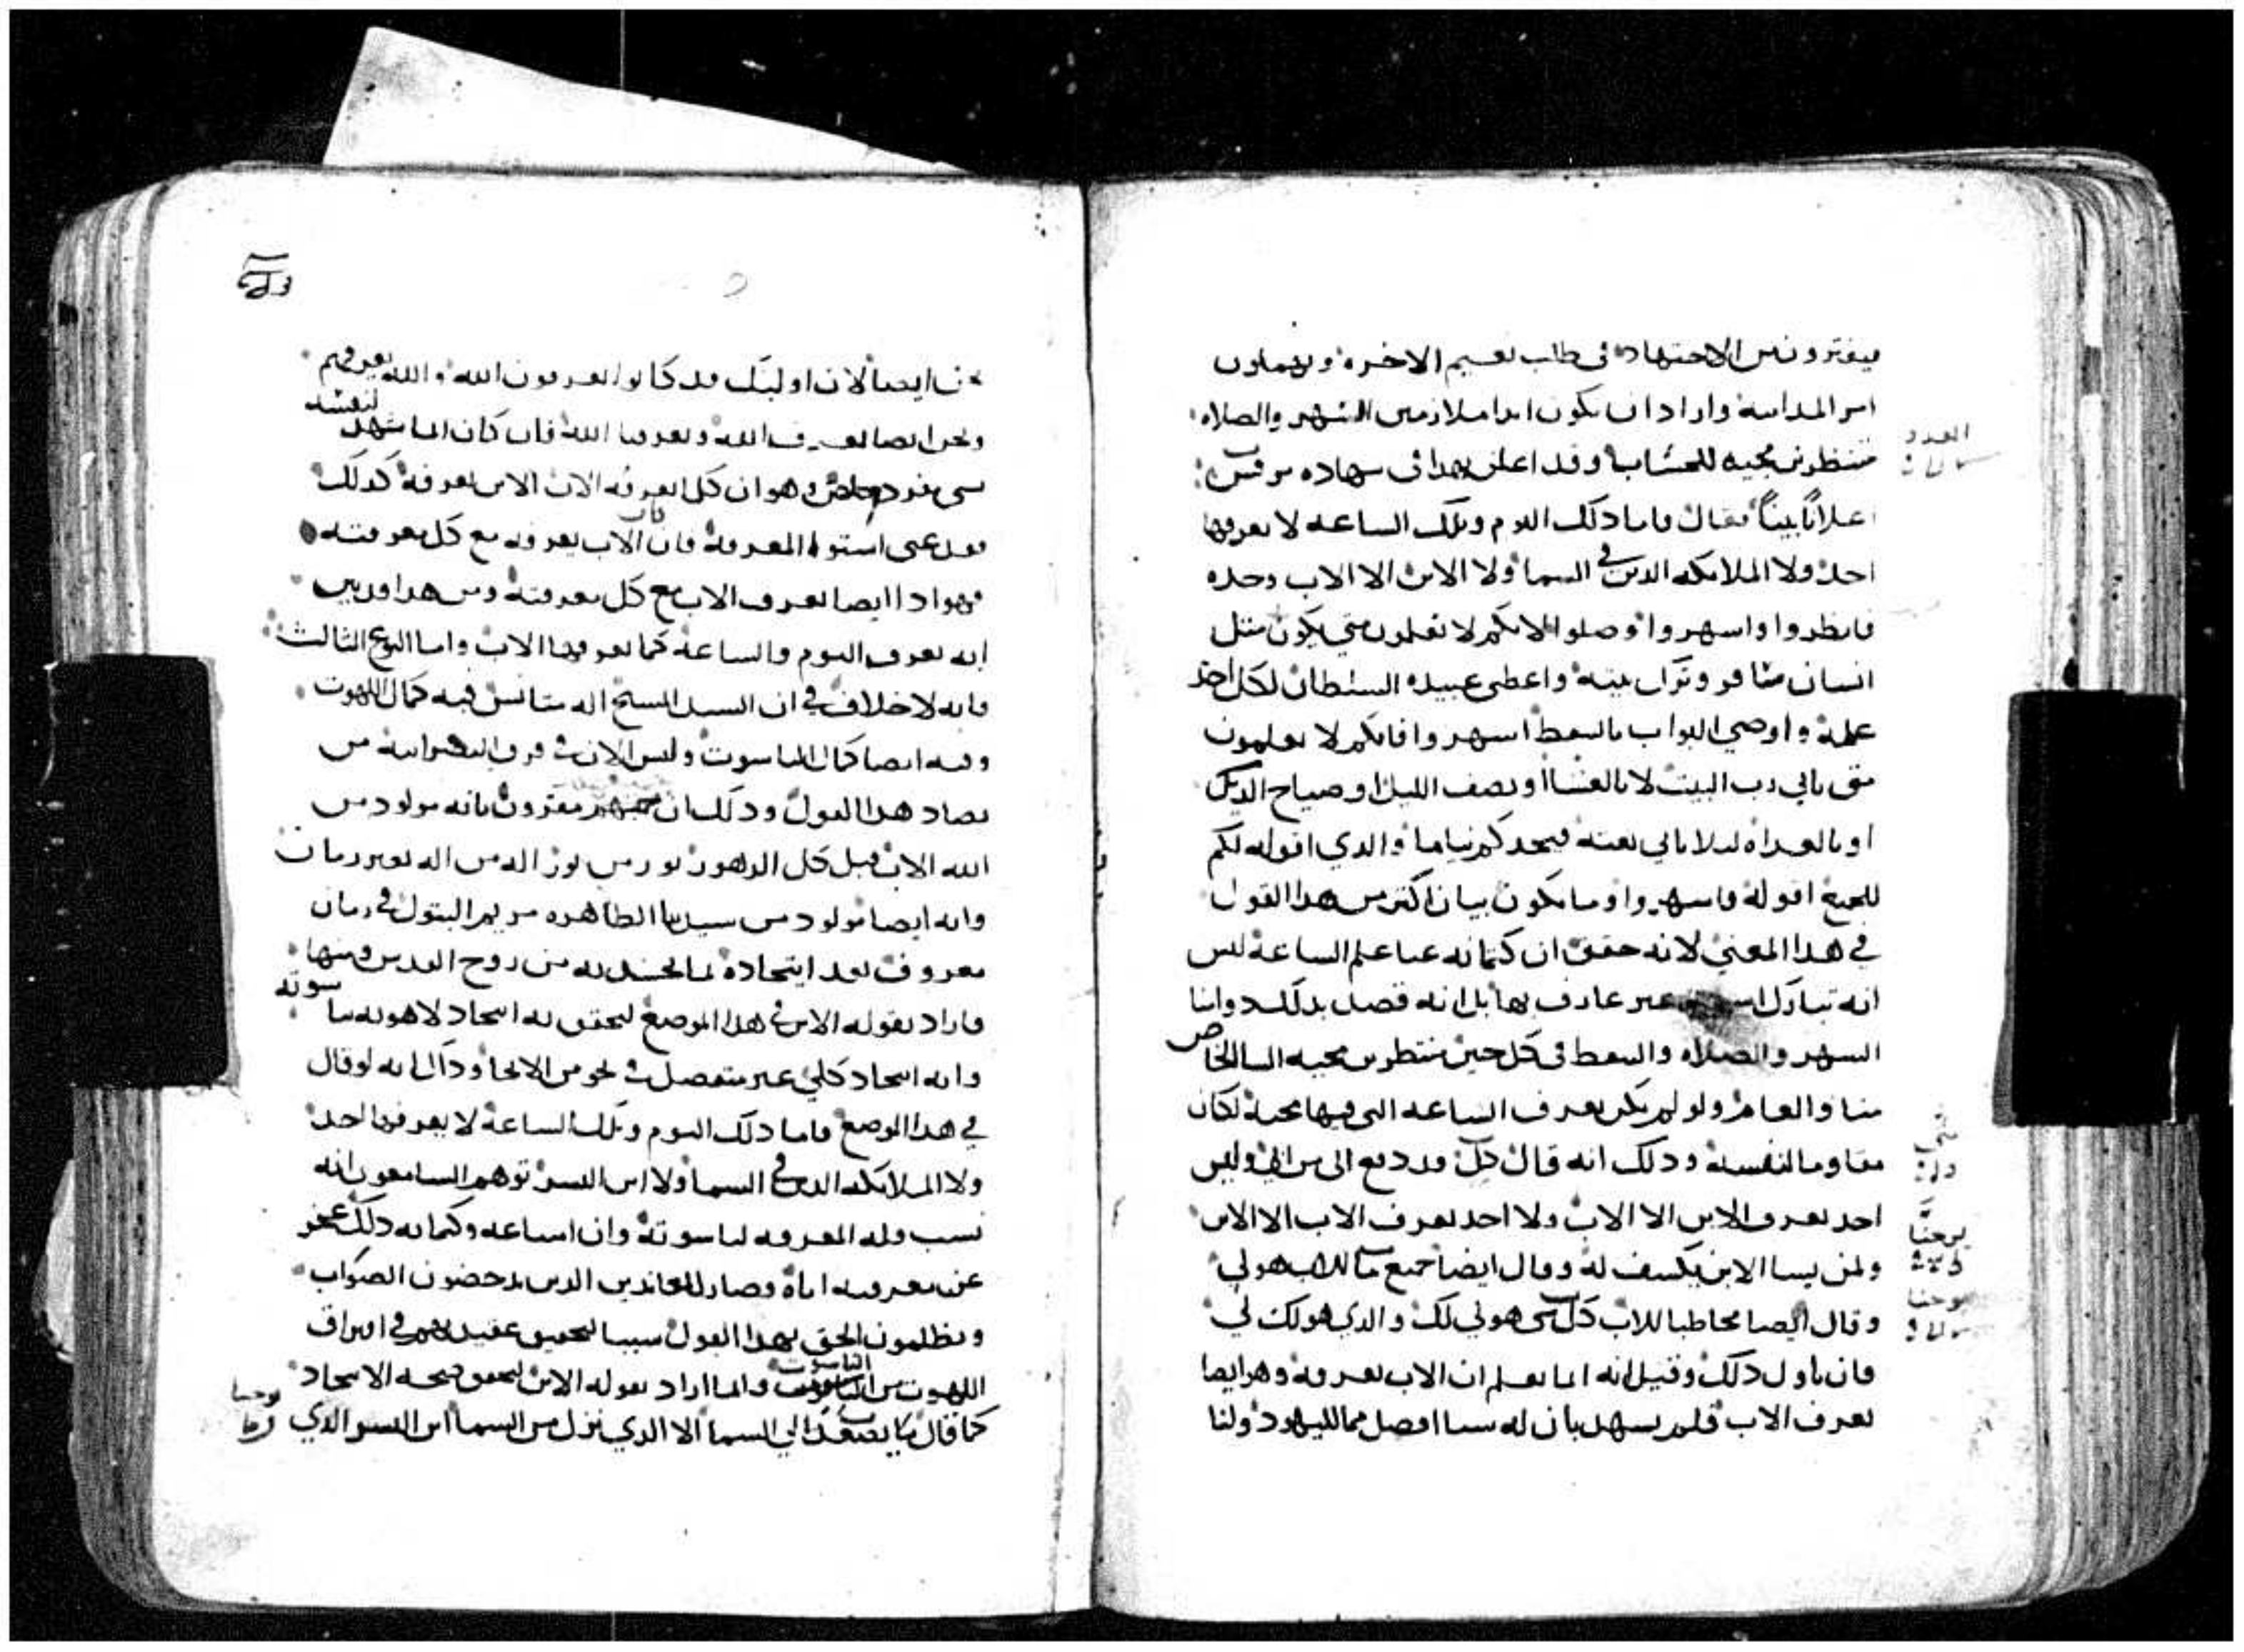 فيفترون من الاجتهاد في طلب نعيم الاخره ويهملون
امر المداينة واراد ان يكون ابدا ملازمين السهر والصلاه
منتظرين مجيه للحساب وقد اعلن بهدا في شهاده مرقس
اعلانًا بينًا فقال فاما دلك اليوم وتلك الساعه لا يعرفها
احد ولا الملايكه الدين في السما ولا الابن الا الاب وحده
فانظروا واسهروا وصلوا لانكم لا تعلمون متي يكون مثل
انسان مسافر وترك بيته واعطى عبيده السلطان لكل احد
عمله واوصي البواب بالتيقظ اسهروا فانكم لا تعلمون
متى ياتي رب البيت لا بالعشا او نصف الليل او صياح الديك
او بالغداه ليلا ياتي بغتة فيجدكم نياما والدي اقوله لكم
للجميع اقوله فاسهروا وما يكون بيان اكتر من هدا القول
في هدا المعني لانه حقق ان كتمانه عنا علم الساعة ليس
انه تبارك اسمه غير عارف بها بل انه قصد بدلك دوامنا
السهر والصلاه والتيقظ في كل حين منتظرين مجيه الينا الخاص
منا والعام ولو لم يكن يعرف الساعه التي فيها مجيه لكان
مقاوما لنفسه ودلك انه قال كل قد دفع الي من ابي وليس
احد يعرف الابن الا الاب ولا احد يعرف الاب الا الابن
ولمن يشا الابن يكشف له وقال ايضا جميع ما للاب هو لي
وقال ايضا مخاطبا للاب كل شي هو لي لك والدي هو لك لي
فان تاول دلك وقيل انه انما نعلم ان الاب يعرفه وهو ايضا
يعرف الاب فلم يشهد بان له شيا افضل مما لليهود ولنا
يوحنا
يوحنا
نحن ايضا لان اوليك قد كانوا يعرفون الله والله يعرفهم
ونحن ايضا نعرف الله ويعرفنا الله فان كان انما شهد لنفسه
بشي مفرد خاص وهو ان كل يعرفه الاب الابن يعرفه كدلك
فقد عنى استوا المعرفة فان كان الاب يعرفه مع كل معرفته
فهو ادا ايضا يعرف الاب مع كل معرفته ومن هدا وربين
انه يعرف اليوم والساعة كما يعرفها الاب واما النوع الثالث
فانه لا خلاف في ان السيد المسيح اله متانس فيه كمال اللاهوت
وفيه ايضا كمال الناسوت وليس الان في فرق النصرانية من
يضاد هدا القول ودلك ان جميعهم مقرون بانه مولود من
الله الاب قبل كل الدهور نور من نور اله من اله بغير زمان
وانه ايضا مولود من سيدتنا الطاهره مريم البتول في زمان
معروف بعد اتحاده لما تجسد به من روح القدس ومنها
فاراد بقوله الابن في هدا الموضع ليحقق به اتحاد لاهوته بناسوته
وانه اتحاد كلي غير منفصل في نحو من الانحا ودلك انه لو قال
في هدا الموضع فاما دلك اليوم وتلك الساعة لا يعرفها احد
ولا الملايكه الدين في السما ولا ابن البشر توهم السامعون انه
نسب قله المعرفه لناسوته وان امتناعه وكتمانه دلك عجز
عن معرفته اياه وصار للمعاندين الدين يدحضون الصواب
ويظلمون الحق بهدا القول سببا لتحقيق عقيدتهم في افتراق
اللاهوت من الناسوت وانما اراد بقوله الابن لتحقق صحه الاتحاد
كما قال ما يصعد الي السما الا الدي نزل من السما ابن البشر الدي
يوحنا